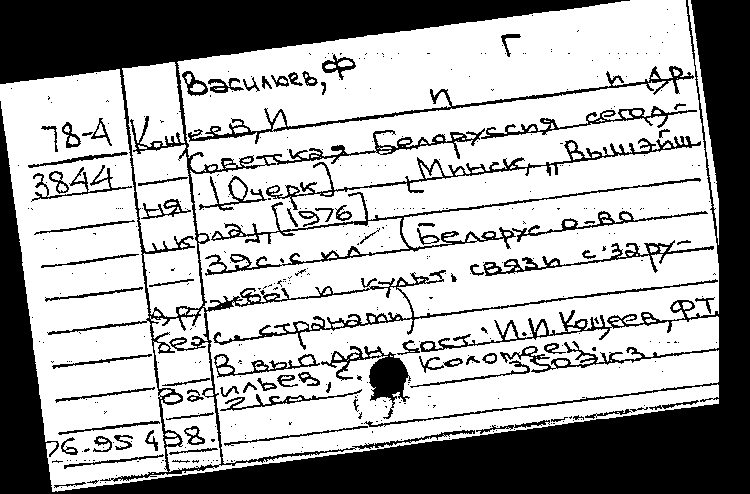 Васильев, Ф Г
78-4 Кощеев, И П и др.
3844 Советская Белоруссия сегод-
ня. [Очерк]. [Минск, „Вышэйш
школа", [1976].
32с. с ил. (Белорус. о-во
дружбы и культ. связи с зару-
беж. странами).
В вып. дан. сост.: И.П. Кощеев, Ф.Г.
Васильев, С. Коломеец.
21см. 350экз.
76.95498.